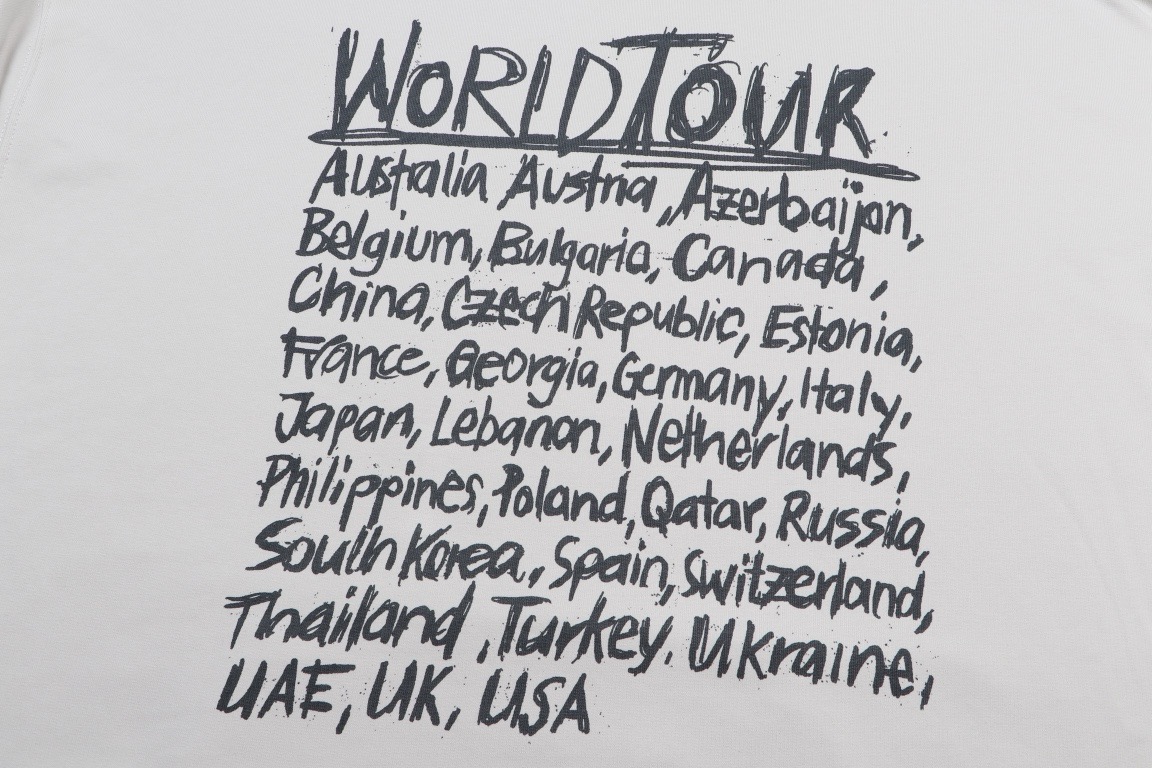 WORLD TOUR
Australia Austria, Azerbaijan,
Belgium, Bulgaria, Canada,
China, Czech Republic, Estonia,
France, Georgia, Germany, Italy,
Japan, Lebanon, Netherlands,
Philippines, Poland, Qatar, Russia,
South Korea, Spain, Switzerland,
Thailand, Turkey. Ukraine,
UAE, UK, USA